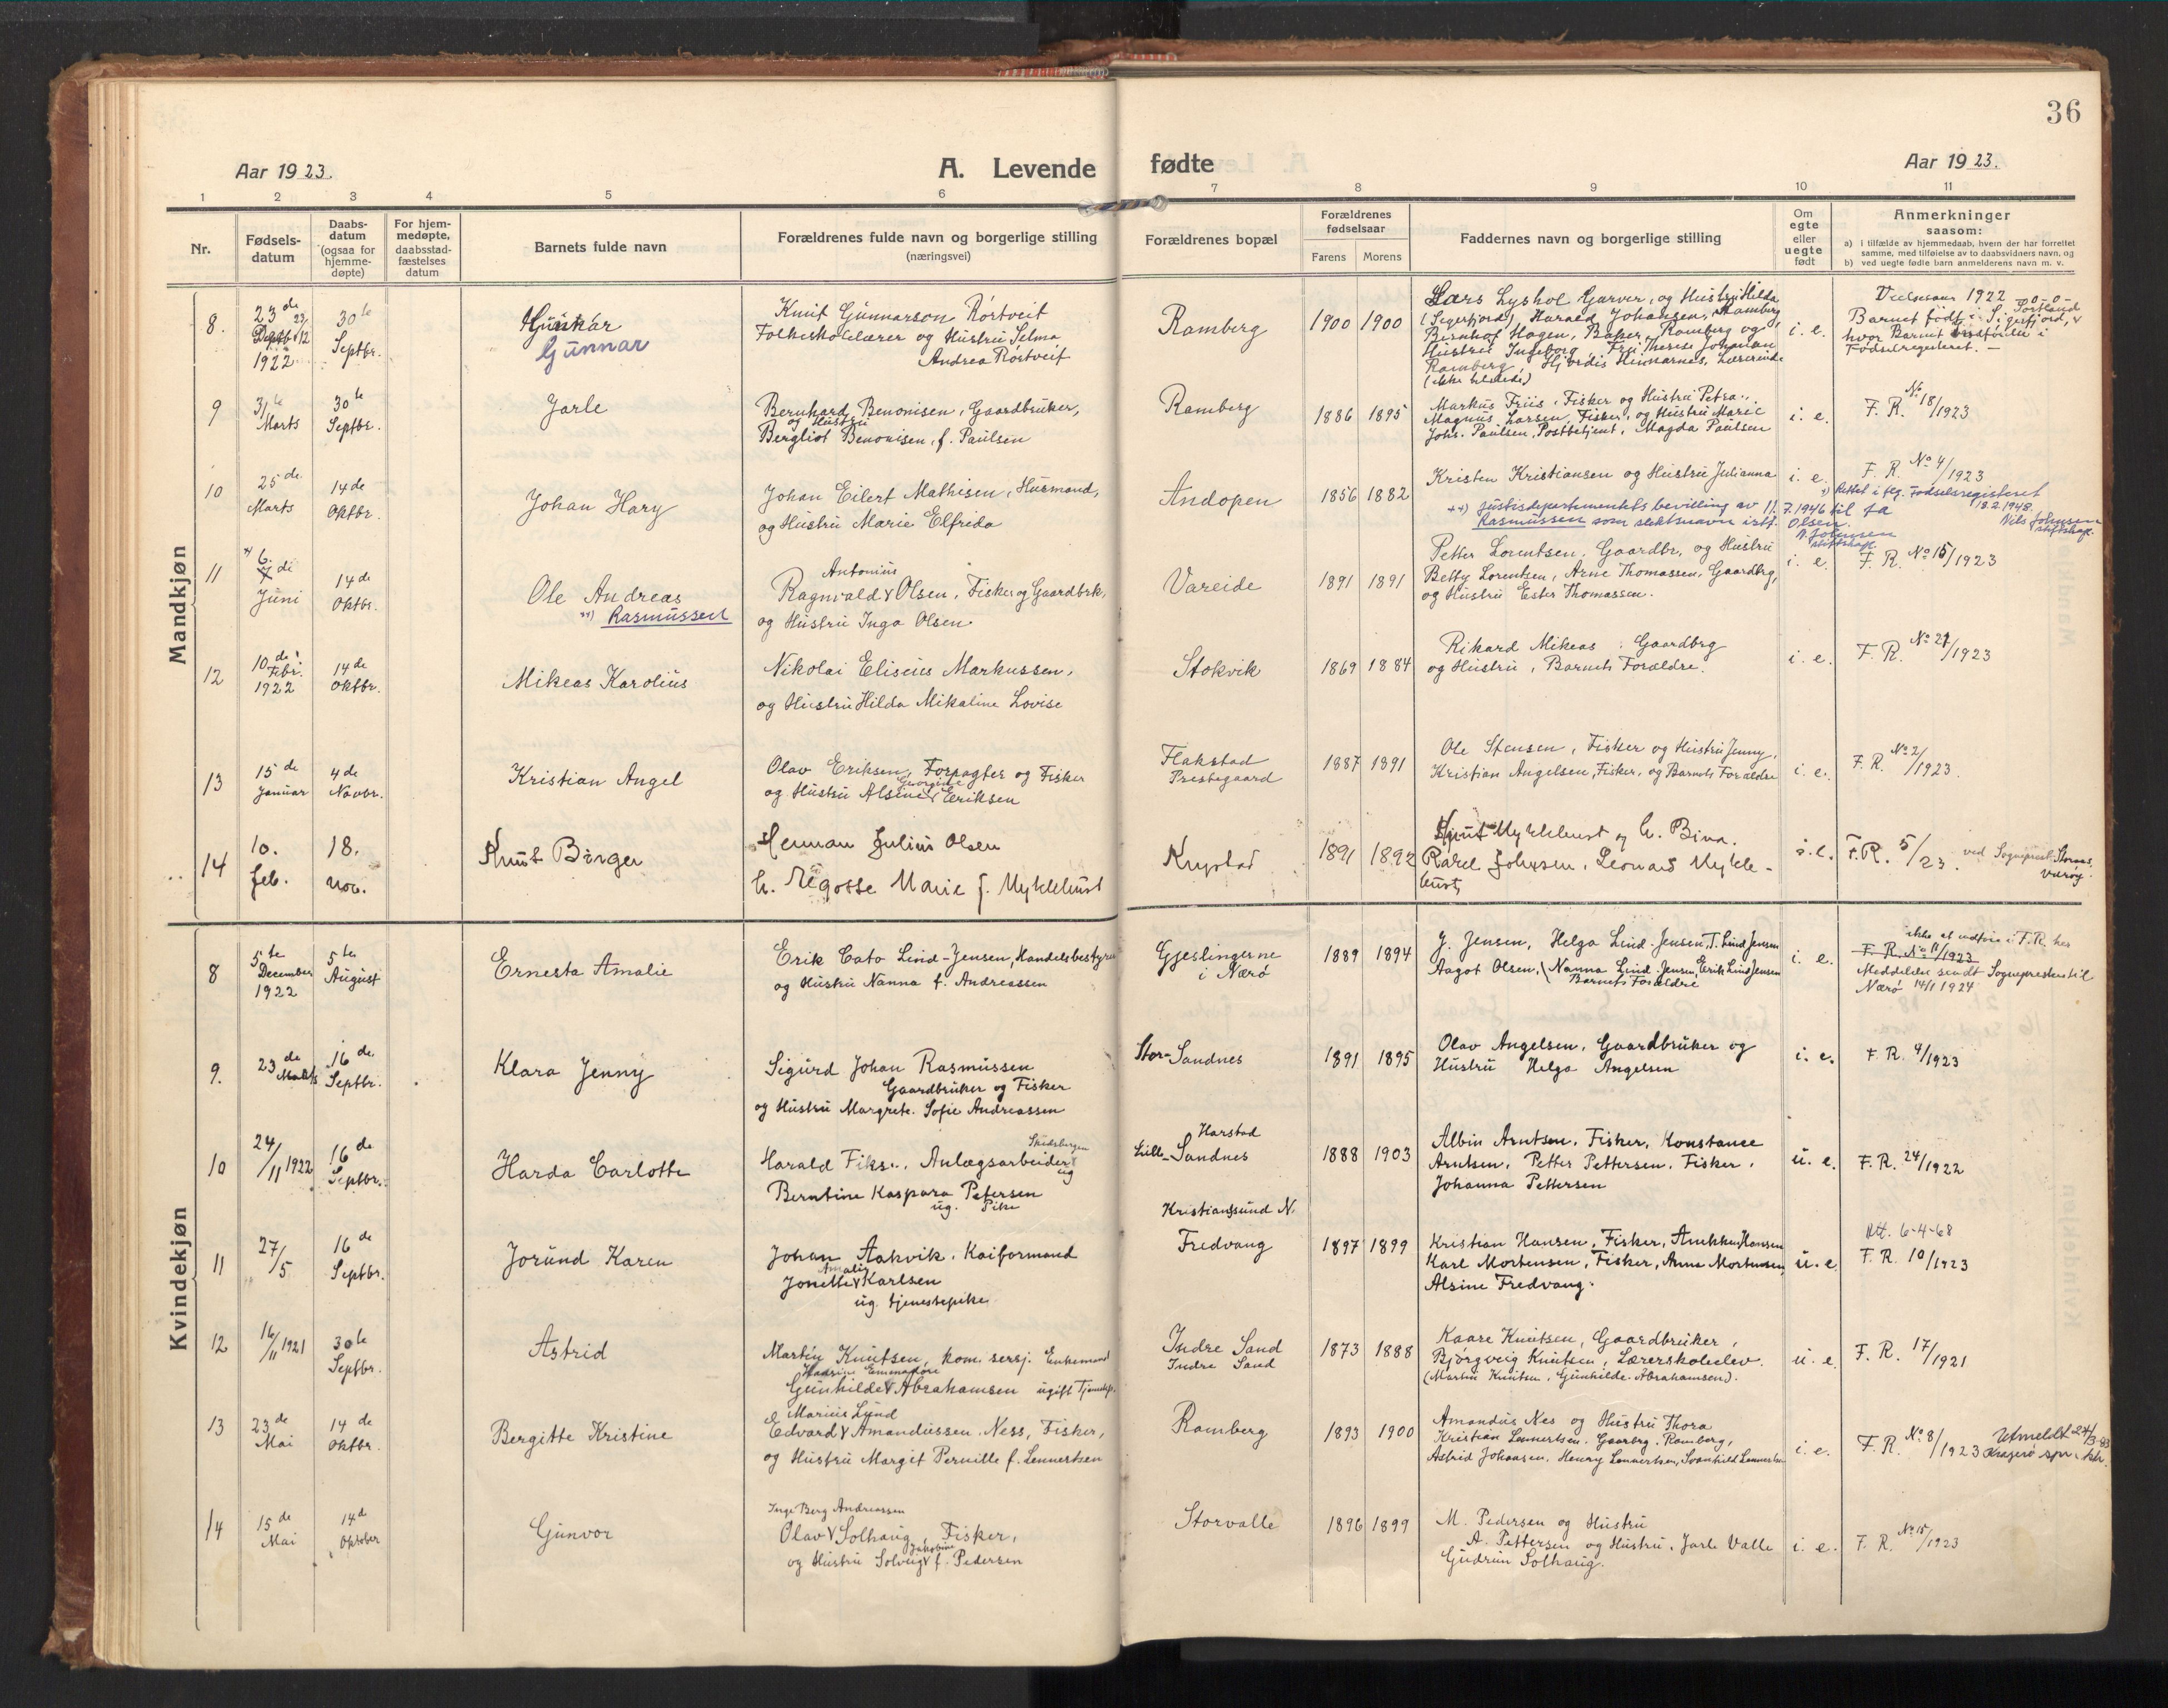 36
Aar 1923.
A. Levende fødte
Aar 1923.
1 2 3 4 5 6 7 8 9 10 11
Nr.
Fødsels-
datum
Daabs-
datum
(ogsaa for
hjemme-
døpte)
For hjem-
medøpte,
daabsstad-
fæstelses
datum
Barnets fulde navn
Forældrenes fulde navn og borgerlige stilling
(næringsvei)
Forældrenes bopæl
Forældrenes
fødselsaar
Farens Morens
Faddernes navn og borgerlige stilling
Om
egte
eller
uegte
født
Anmerkninger
saasom:
a) i tilfælde av hjemmedaab, hvem der har forrettet
samme, med tilføielse av to daabsvidners navn, og
b) ved uegte fødte barn anmelderens navn m. v.
Mandkjøn
8.
23de 23/12
1922
30te
Septbr.
Gunnar
Gunnar
Knut Gunnarson Rörtveit
Folkeskolelærer og Hustru Selma
Andrea Rörtveit
Ramberg
1900 1900
Lars Lyshol Garver, og Hustru Hilda
(Sigerfjord), Harald Johansen, Ramberg
Birnhof Hagen, Baker, Ramberg og
Hustru Ingeborg, Fru Therese Johansen
Ramberg, Hjördis Heimarnes, Lærerinde
(ikke tilstede)
i. e.
Vielsesaar 1922
Barnet født i Sigerfjord,
hvor Barnet er indført i
Fødselregisteret.
9
31te
Marts
30te
Septbr.
Jarle
Bernhard Benonisen, Gaardbruker,
og Hustru
Bergliot Benonisen, f. Paulsen
Ramberg
1886 1895
Markus Friis, Fisker og Hustru Petra.
Magnus Larsen, Fisker, og Hustru Marie
Johs. Paulsen, Postbetjent, Magda Paulsen
i. e.
F. R. No 18/1923
10
25de
Marts
14de
Oktbr.
Johan Hary
Johan Eilert Mathisen, Husmand,
og Hustru Marie Elfrida
Andopen
1856 1882
Kristen Kristiansen og Hustru Julianna
i. e.
F. R. No 4/1923
x) Rettet i flg. Fødselsregisteret
18.2.1948.
Nils Johnsen
++) Justisdepartementets bevilling av 11.7.1946 til å ta
Rasmussen som slektsnavn istf. Olsen.
N. Johnsen
11
x) 6. 7de
Juni
14de
Oktbr.
Ole Andreas
++) Rasmussen
Antonius
Ragnvald Olsen, Fisker og Gaardbrk,
og Hustru Inga Olsen.
Vareide
1891 1891
Petter Lorentsen, Gaardbr, og Hustru
Betty Lorentsen, Arne Thomassen, Gaardbrg,
og Hustru Ester Thomassen.
i. e.
F. R. No 15/1923
12
10de
Febr.
1922
14de
Oktbr.
Mikeas Karolius
Nikolai Eliseus Markussen,
og Hustru Hilda Mikaline Lovise
Stokvik
1869 1884
Rikard Mikeas, Gaardbrg
og Hustru, Barnets Forældre.
i. e.
F. R. No 21/1923
13
15de
Januar
4de
Novbr.
Kristian Angel
Olav Eriksen, Forpagter og Fisker
Georgine
og Hustru Alsine Eriksen
Flakstad
Prestegaard
1887 1891
Ole Stensen, Fisker og Hustru Jenny,
Kristian Angelsen, Fisker, og Barnets Forældre
i. e.
F. R. No 2/1923.
14
10.
feb.
18.
nov.
Knut Birger
Herman Julius Olsen
h. Marie f. Myklebust
1891 1892
Knut Myklebust og h. Bina.
Karel Johnsen, Leonard Mykle-
bust,
i. e.
F. R. 5/23. ved Sogneprest
Værøy.
Kvindekjøn
8
5te
December
1922
5te
August
Ernesta Amalie
Erik Cato Lind-Jensen, Handelsbestyrer
og Hustru Nanna f. Andreassen
Gjeslingerne
i Nærø
1889 1894
J. Jensen, Helga Lind-Jensen, T. Lind Jensen
Aagot Olsen, (Nanna Lind Jensen, Erik Lind Jensen
Barnets Forældre
i. e.
ikke at indføre i F.R. her
F. R. No 11/1923
Meddelelse sendt Sognepresten til
Nærø 14/1 1924
9.
23de Marts
16de
Septbr.
Klara Jenny
Sigurd Johan Rasmussen
Gaardbruker og Fisker
og Hustru Margrete Sofie Andreassen
Stor-Sandnes
1891 1895
Olav Angelsen, Gaardbruker og
Hustru Helga Angelsen
i. e.
F. R. 9/1923
10
24/11 1922
16de
Septbr.
Harda Carlotte
Harald Fiks, Anlægsarbeider
ug
Berntine Kaspara Petersen
ug. Pike
Harstad
Lille-Sandnes
1888 1903
Albin Arntsen, Fisker, Konstance
Arntsen, Petter Pettersen, Fisker,
Johanna Pettersen
u. e.
F. R. 24/1922
11
27/5
16de
Septbr.
Jorund Karen
Johan Aakvik, Kaiformand
Amalie
Jonette Karlsen
ug. tjenestepike
Kristianssund N.
Fredvang
1897 1899
Kristian Hansen, Fisker, Hansen
Karl Mortensen, Fisker, Anna Mortensen
Alsine Fredvang.
u. e.
Att. 6-4-68
F. R. 10/1923
12
16/11 1921
30te
Septbr.
Astrid
Martin Knutsen, kom. sersj. Enkemand
Gunhilde Abrahamsen ugift Tjenestep.
Indre Sand
Indre Sand
1873 1888
Kaare Knutsen, Gaardbruker,
Björgveig Knutsen, Lærerskoleelev.
(Martin Knutsen, Gunhilde Abrahamsen).
u. e.
F. R. 17/1921
13
23de
Mai
14de
Oktbr.
Bergitte Kristine
Marius Lund
Edvard Amandussen Ness, Fisker,
og Hustru Margit Pernille f. Lennertsen
Ramberg
1893 1900
Amandus Nes og Hustru Thora
Kristian Lennertsen, Gaarbrg, Ramberg,
Astrid Johansen, Henry Lennertsen, Svanhild Lennertsen
i. e.
F. R. No 8/1923
Utmeldt 24/3-83
Kragerø
14
15de
Mai
14de
Oktober
Gunvor
Inge Berg Andreassen
Olav Solhaug, Fisker,
Jakobine
og Hustru Solveig f. Pedersen
Storvalle
1896 1899
M. Pedersen og Hustru
A. Pettersen og Hustru, Jarle Valle
Gudrun Solhaug.
i. e.
F. R. No 15/1923